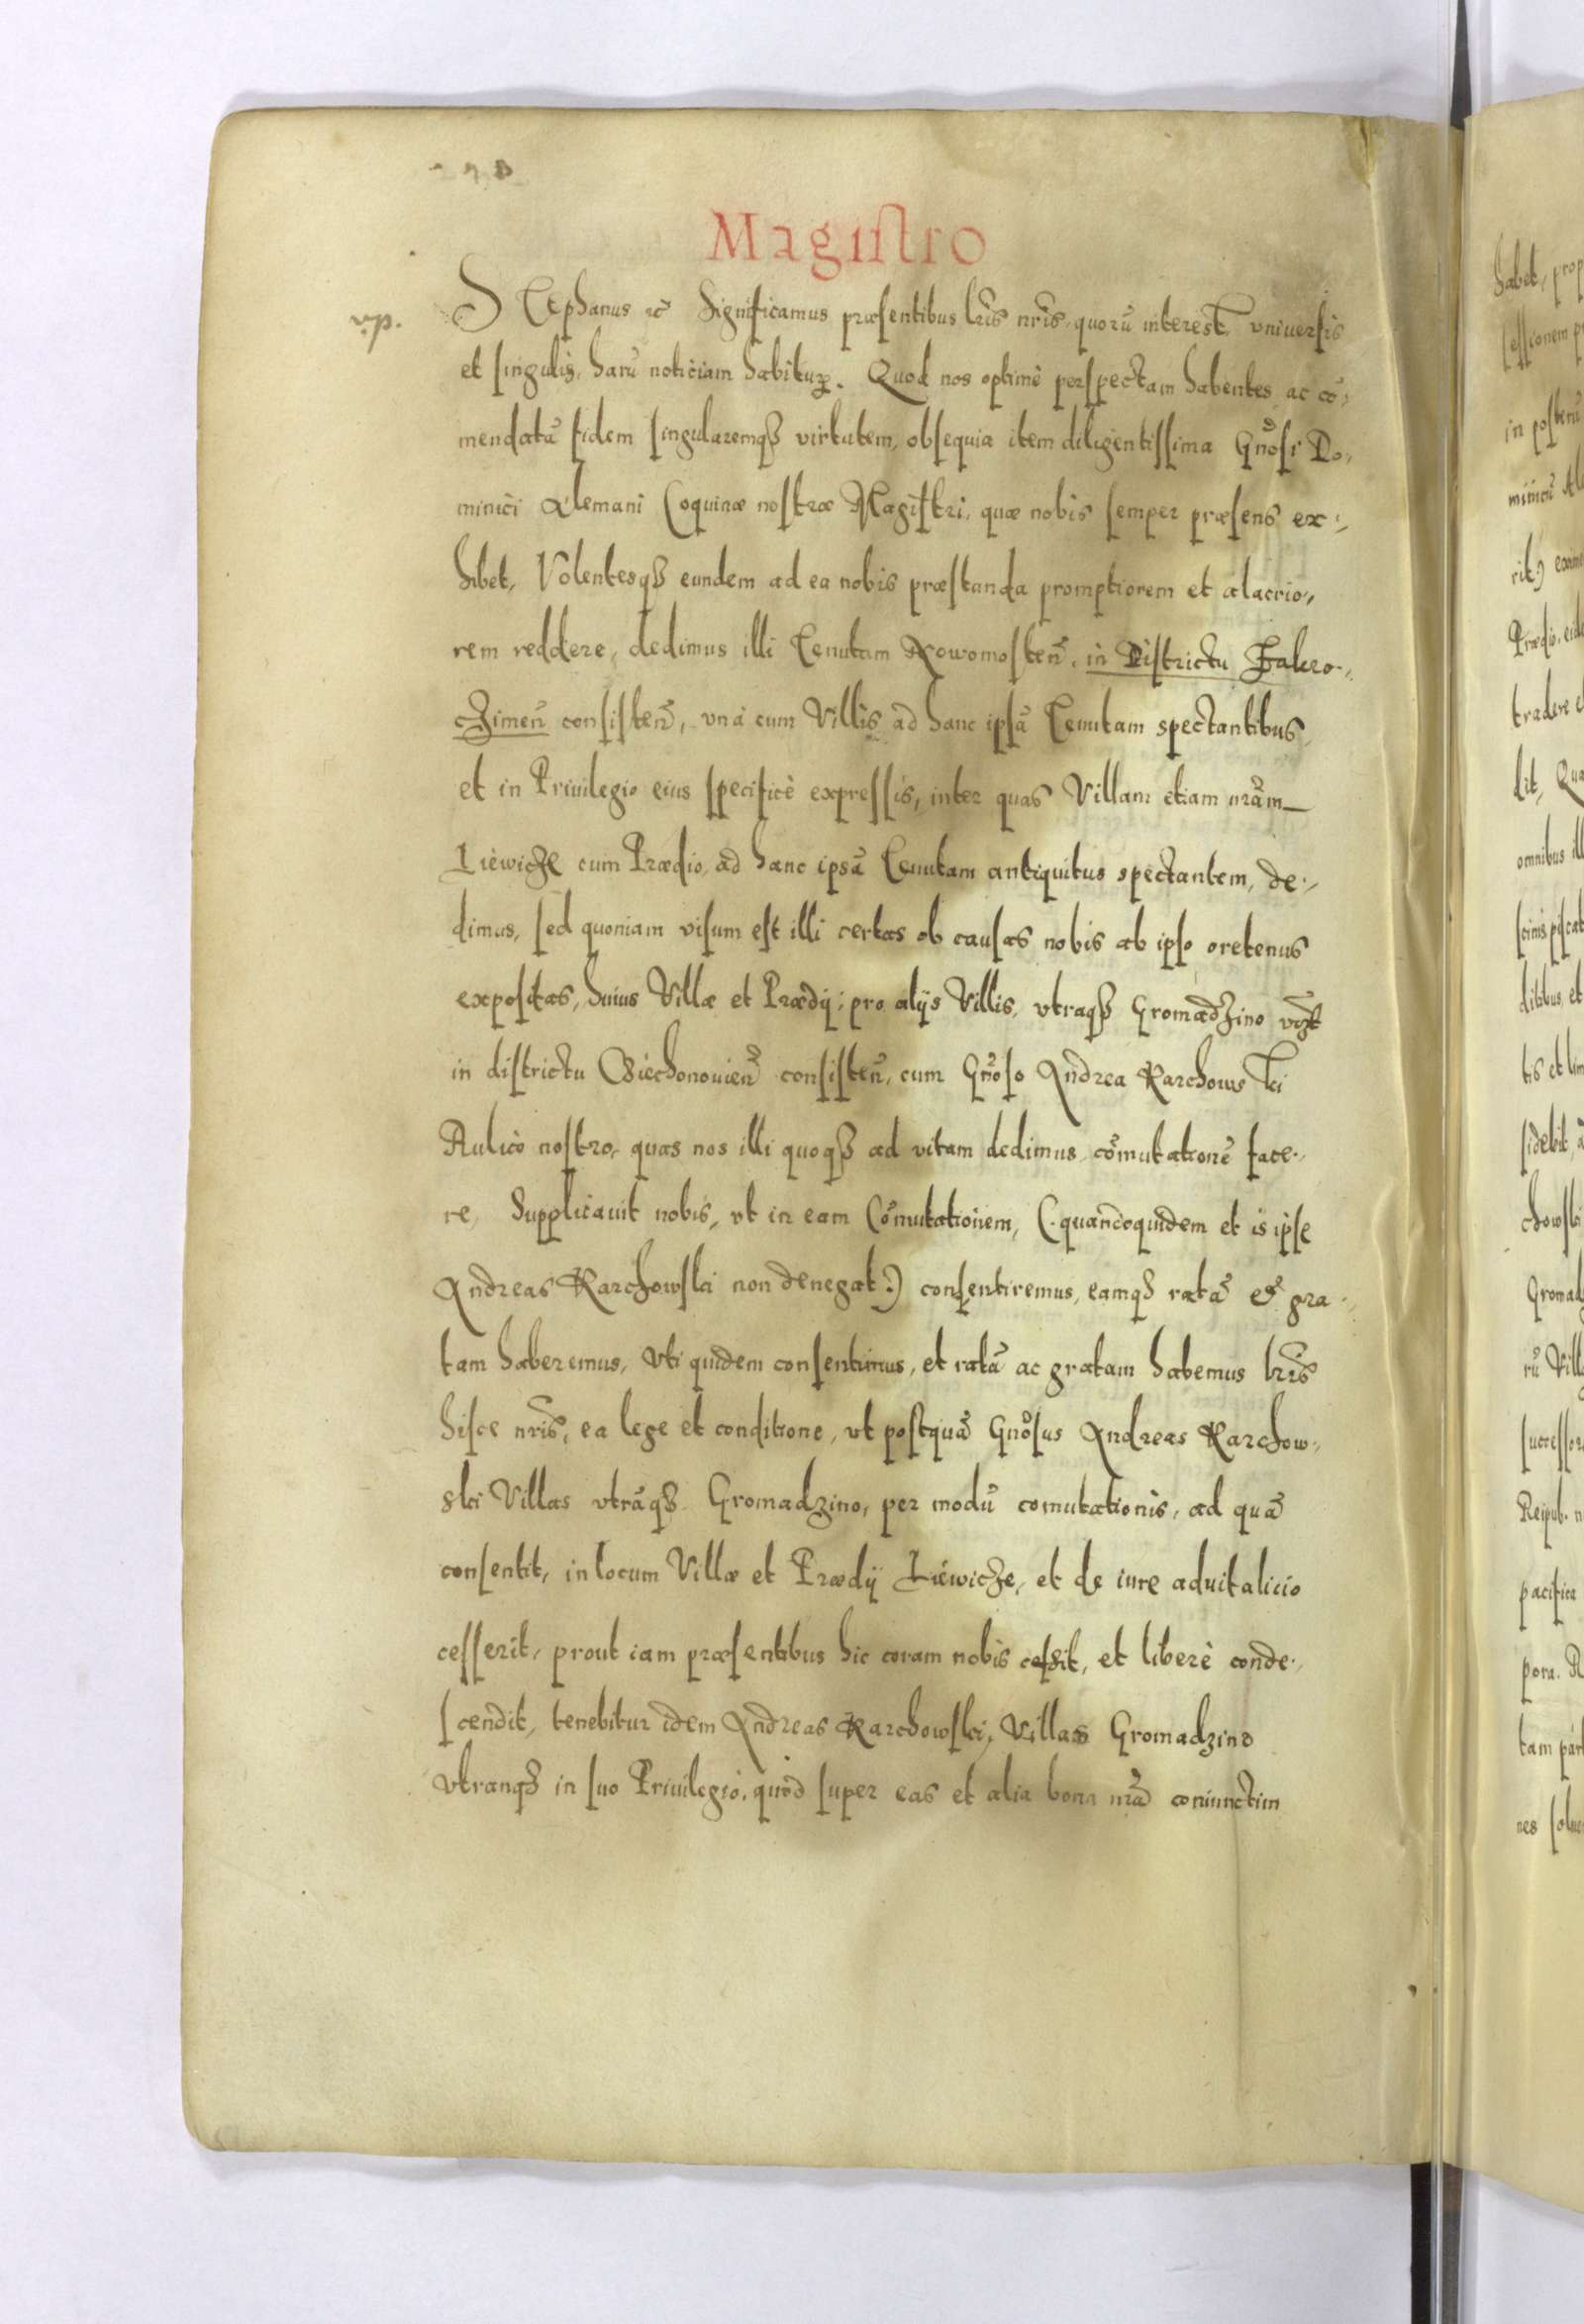 Magistro
vp.
Stephanus etc Significamus præsentibus lr̃is nr̃is, quorũ interest, vniuersis
et singulis, harũ noticiam habituꝝ. Quod nos optimè perspectam habentes ac cõ,
mendatã fidem singularemqȝ virtutem, obsequia item diligentissima Gñosi Do,
minici Alemani Coquinæ nostræ Magistri, quæ nobis semper præsens ex,
hibet, Volentesqȝ eundem ad ea nobis præstanda promptiorem et alacrio,
rem reddere, dedimus illi Tenutam Nowomosteñ. in Districtu Zakro.
cZimeñ consisteñ, vnà cum Villis ad hanc ipsã Tenutam spectantibus,
et in Priuilegio eius specificè expressis, inter quas Villam etiam nr̃am
Liewicze cum Prædio, ad hanc ipsã Tenutam antiquitus spectantem, de,
dimus, sed quoniam visum est illi certas ob causas nobis ab ipso oretenus
expositas, huius Villæ et Prædij; pro alijs Villis, vtraqȝ Gromadzino
in districtu Ciechonouieñ consisteñ, cum Gñoso Andrea Karchowski
Aulico nostro, quas nos illi quoqȝ ad vitam dedimus, cõmutationẽ face,
re, Supplicauit nobis, vt in eam Cõmutationem, (quandoquidem et is ipse
Andreas Karchowski non denegat) consentiremus, eamqȝ ratã et gra,
tam haberemus, Vti quidem consentimus, et ratã ac gratam habemus lr̃is
hisce nr̃is, ea lege et conditione, vt postquã Gñosus Andreas Karchow,
ski Villas vtrãqȝ Gromadzino, per modũ comutationis, ad quã
consentit, in locum Villæ et Prædij Liewicze, et de iure aduitalicio
cesserit, prout iam præsentibus hic coram nobis cessit, et liberè conde,
scendit, tenebitur idem Andreas Karchowski, Villas Gromadzino
vtranqȝ in suo Priuilegio, quod super eas et alia bona nr̃a coniunctim